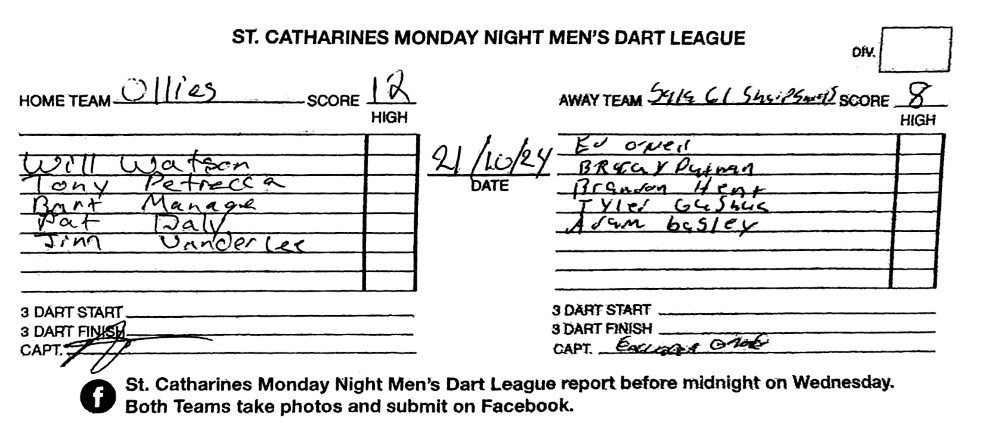 ST. CATHARINES MONDAY NIGHT MEN'S DART LEAGUE
DIV.
HOME TEAM Ollies SCORE 12
HIGH
AWAY TEAM SCORE 8
HIGH
21/10/24
DATE
Will Watson
Tony Petrecca
Bart Manage
Pat Daly
Jim Vanderlee
Ed oneil
Putman
Brandon Hent
Tyler
Adam basley
3 DART START
3 DART FINISH
CAPT.
3 DART START
3 DART FINISH
CAPT.
f St. Catharines Monday Night Men's Dart League report before midnight on Wednesday.
Both Teams take photos and submit on Facebook.